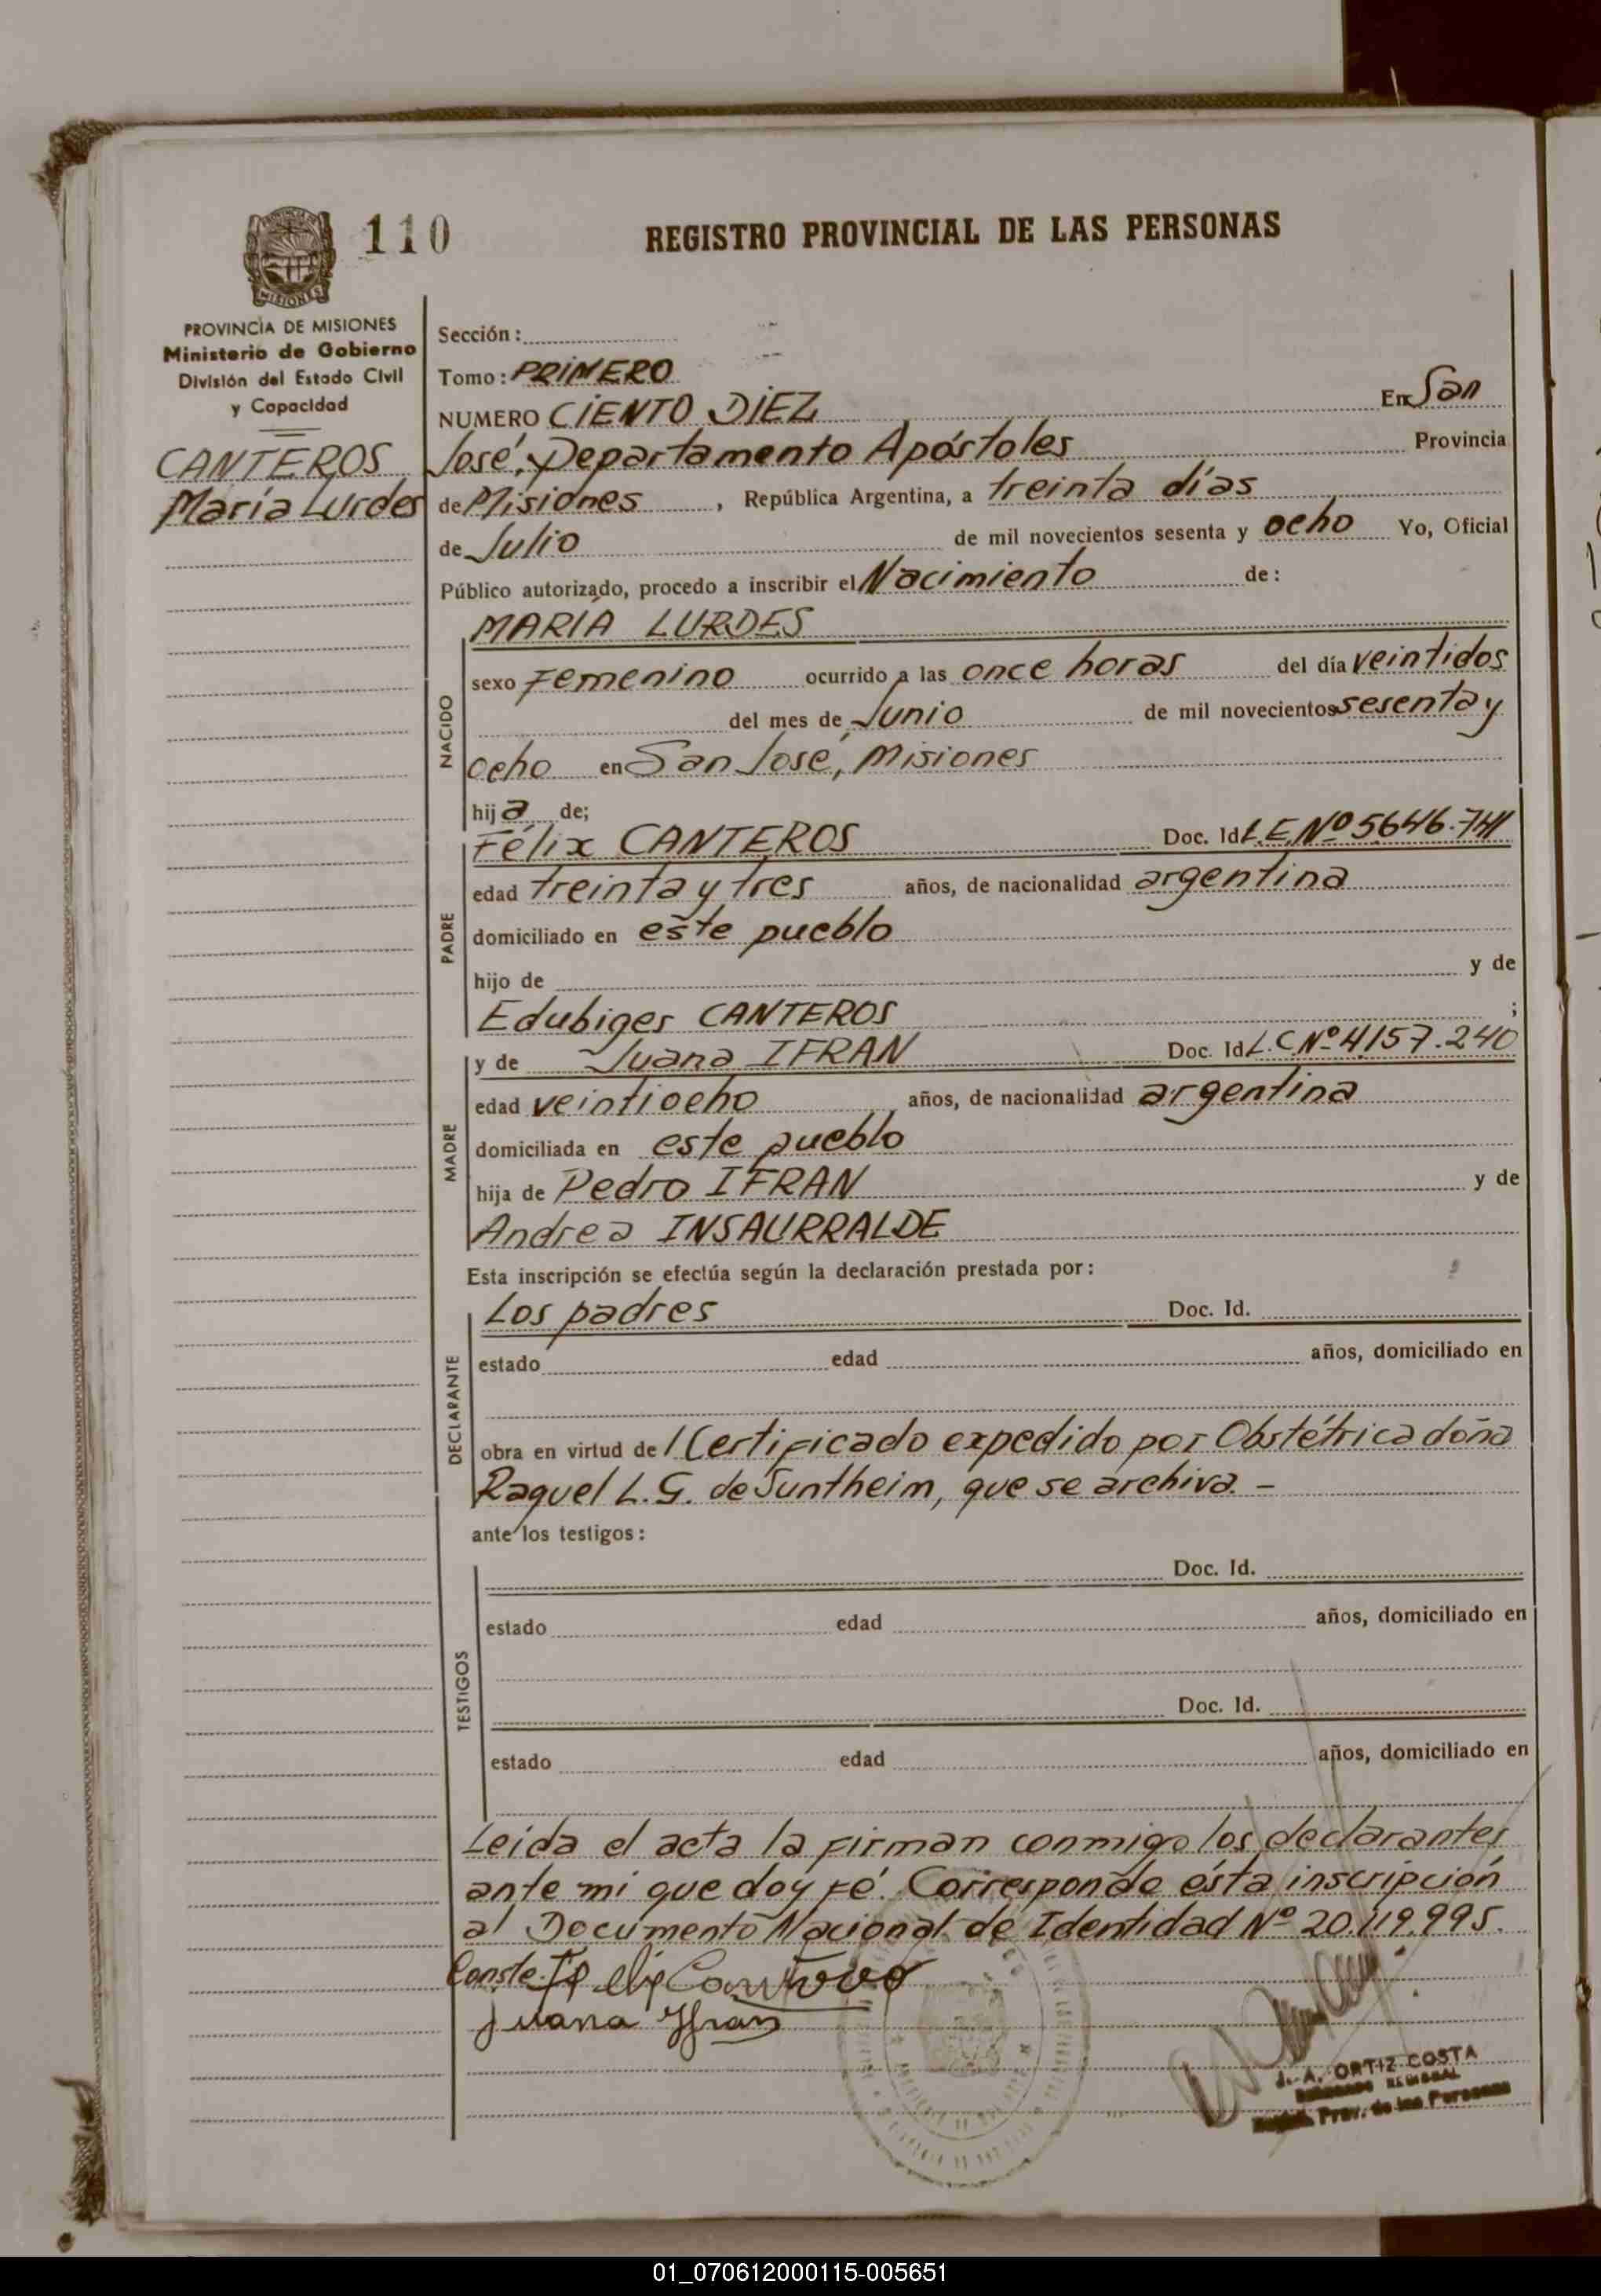 110
REGISTRO PROVINCIAL DE LAS PERSONAS
MISIONES
PROVINCIA DE MISIONES
Ministerio de Gobierno
División del Estado Civil
y Capacidad
CANTEROS
María Lurdes
Sección:
Tomo: PRIMERO
NUMERO CIENTO DIEZ En San
José, Departamento Apóstoles Provincia
de Misiones, República Argentina, a treinta días
de Julio de mil novecientos sesenta y ocho Yo, Oficial
Público autorizado, procedo a inscribir el Nacimiento de:
NACIDO
MARIA LURDES
sexo Femenino ocurrido a las once horas del día veintidos
del mes de Junio de mil novecientos sesenta y
ocho en San José, Misiones
hija de;
PADRE
Félix CANTEROS Doc. Id L.E.Nº 5.646.741
edad treinta y tres años, de nacionalidad argentina
domiciliado en este pueblo
hijo de y de
Edubiges CANTEROS ;
MADRE
y de Juana IFRAN Doc. Id L.C.Nº 4.157.240
edad veintiocho años, de nacionalidad argentina
domiciliada en este pueblo
hija de Pedro IFRAN y de
Andrea INSAURRALDE
Esta inscripción se efectúa según la declaración prestada por:
DECLARANTE
Los padres Doc. Id.
estado edad años, domiciliado en
obra en virtud de 1 Certificado expedido por Obstétrica doña
Raquel L. G. de Suntheim, que se archiva. -
ante los testigos:
TESTIGOS
Doc. Id.
estado edad años, domiciliado en
Doc. Id.
estado edad años, domiciliado en
Leida el acta la firman conmigo los declarantes
ante mi que doy fé. Corresponde ésta inscripción
al Documento Nacional de Identidad Nº 20.119.995.
Conste.
Juana Ifran
J. A. ORTIZ COSTA
Prov. de las Personas
01_070612000115-005651